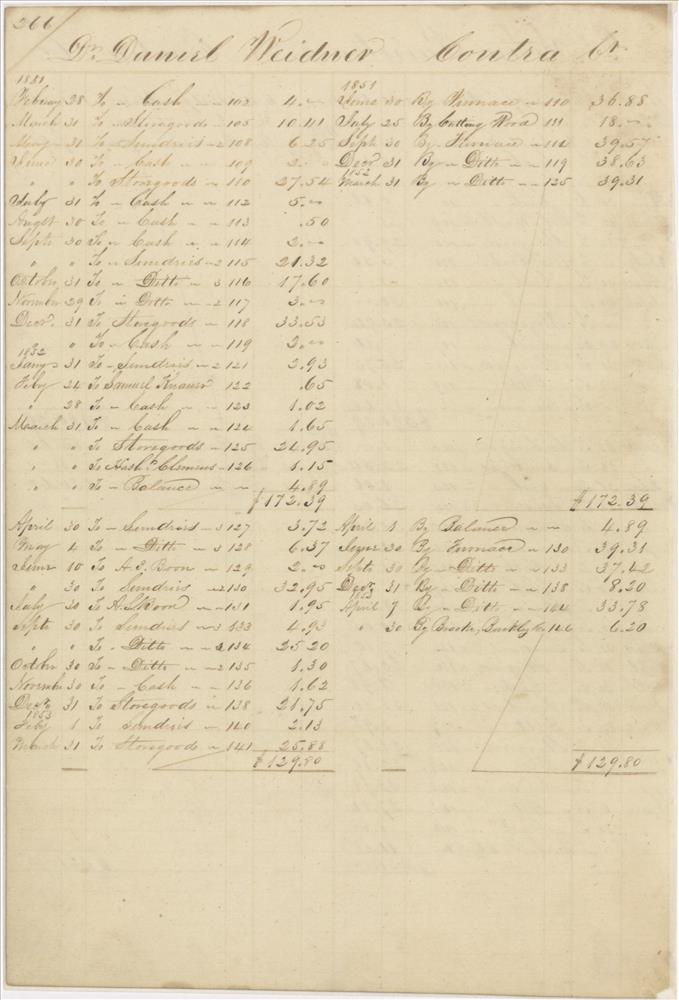 266
Dr. Daniel Weidner Contra Cr.
1851 1851
Februay 28 To " Cash " " 102 4. " June 30 By Furnace " 110 36.88
March 31 To " Storegoods " 105 10.41 July 25 By Cutting Wood 111 18. "
May " 31 To " Sundries " 2 108 6.25 Septr 30 By " Furnace " 114 39.57
June 30 To " Cash " " 109 2. " Decr. 31 By " Ditto " " 119 38.63
" " To Storegoods " 110 27.54 1852 March 31 By " Ditto " " 125 39.31
July 31 To " Cash " " 112 5. "
Augst 30 To " Cash " " 113 .50
Septr 30 To " Cash " " 114 2. "
" " To " Sundries " 2 115 21.32
October 31 To " Ditto " 3 116 17.60
November 29 To " Ditto " 2 117 3. "
Decr. 31 To Storegoods " 118 33.53
" " To " Cash " " 119 2. "
1852
Jany " 31 To " Sundries " 2 121 2.93
Feby 24 To Samuel Knauer 122 .65
" 28 To " Cash " " 123 1.02
March 31 To " Cash " " 124 1.65
" " To Storegoods " 125 21.95
" " To Clemens " 126 1.15
" " To " Balance " " 4.89
$172.39 $172.39
April 30 To " Sundries " 3 127 3.72 April 1 By Balance " " 4.89
May " 4 To " Ditto " 3 128 6.37 June 30 By Furnace " 130 39.31
June 10 To Boon " 129 2. " Septr 30 By " Ditto " " 133 37.42
" 30 To Sundries " 2 130 32.95 Decr. 31 " By " Ditto " " 138 8.20
July 30 To Boon " " 131 1.95 1853 April 7 By " Ditto " " 144 33.78
Septr 30 To Sundries " 3 133 4.93 " 30 By Brooke, 146 6.20
" " To " Ditto " " 2 134 25.20
October 30 To " Ditto " " 2 135 1.30
Novembr 30 To " Cash " " 136 1.62
Decr. 31 To Storegoods " 138 21.75
1853
Feby 1 To Sundries " 140 2.13
March 31 To Storegoods " 141 25.88
$129.80 $129.80